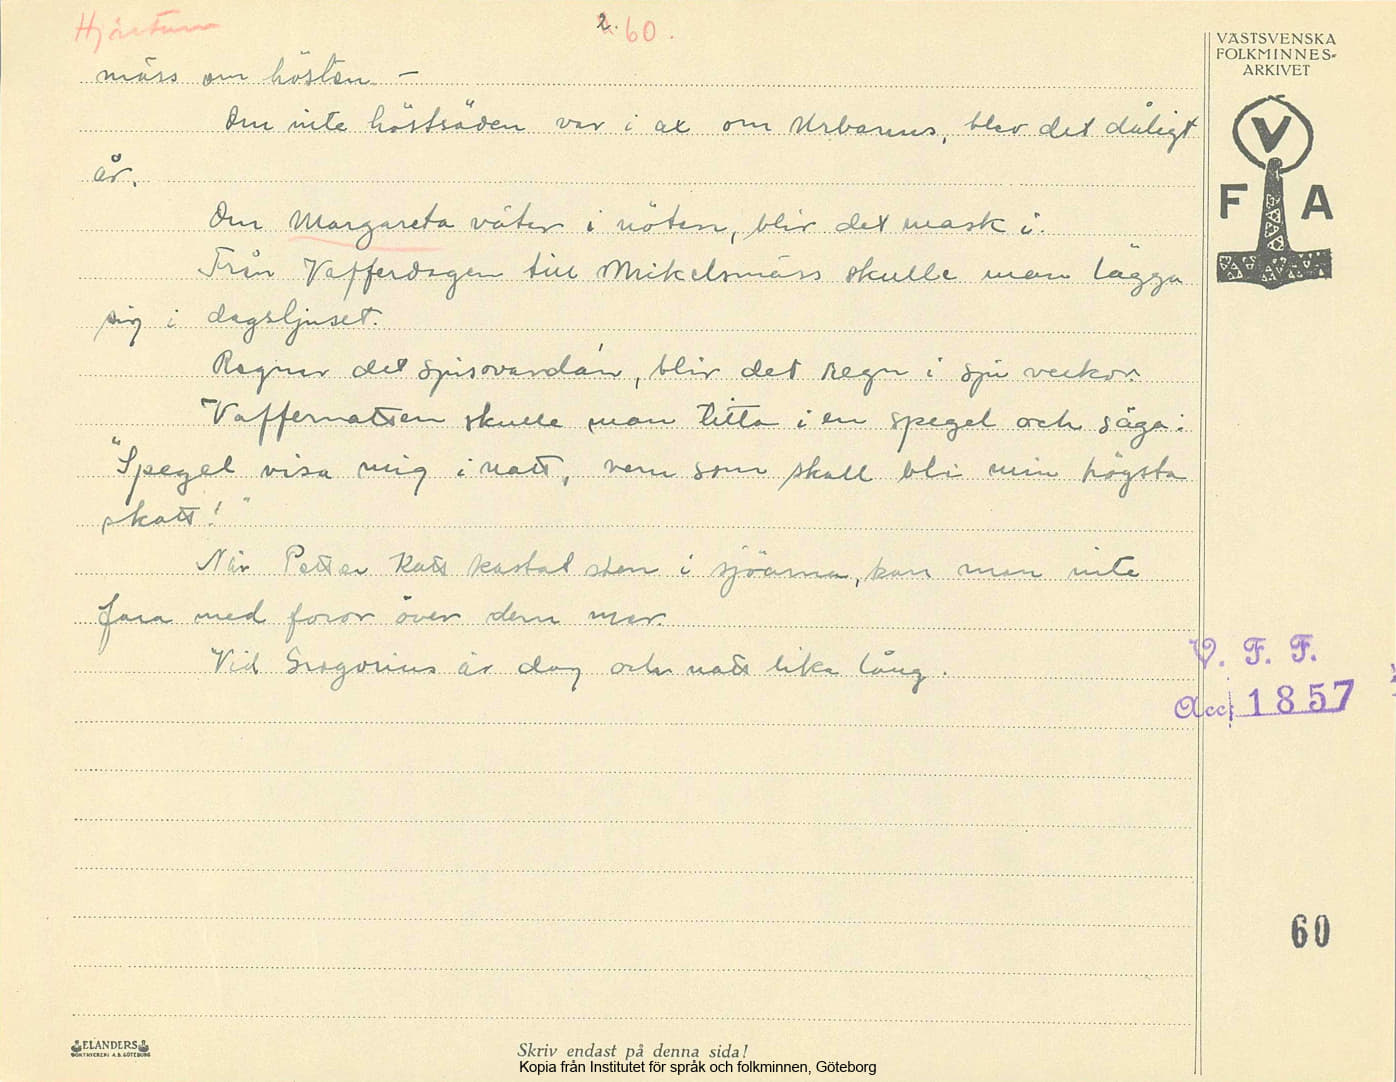 Hjärtum
2.
60.
VÄSTSVENSKA
FOLKMINNES-
ARKIVET
V
F A
mäss om hösten. —
Om inte höstsäden var i ax om Urbanus, blev det dåligt
år.
Om Margareta väter i nöten, blir det mask i.
Från Vafferdagen till Mikelsmäss skulle man lägga
sig i dagsljuset.
Regnar det spisovardán, blir det regn i sju veckor.
Vaffernatten skulle man titta i en spegel och säga:
"Spegel visa mig i natt, vem som skall bli min högsta
skatt!"
När Petter Katt kastat sten i sjöarna, kan man inte
fara med foror över dem mer.
Vid Gregorius är dag och natt lika lång.
V. F. F.
Acc. 1857
60
ELANDERS
BOKTRYCKERI A.B. GÖTEBORG
Skriv endast på denna sida!
Kopia från Institutet för språk och folkminnen, Göteborg